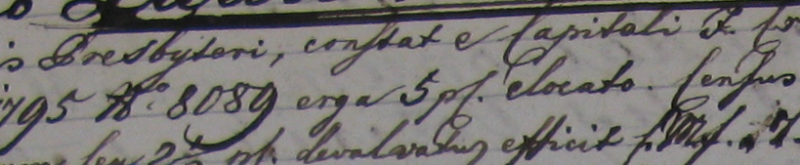 Presbyteri, constat e Capitali F.
795 No. 8089 erga 5 pf. elocato. Census
pf. devalvatus efficit